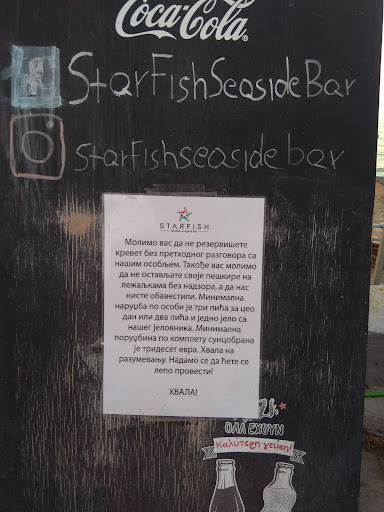 Coca-Cola
StarFishSeasideBar
starfishseasidebar
STARFISH
Молимо вас да не резервишете
кревет без претходног разговора са
нашим особљем. Такође вас молимо
да не остављате своје пешкире на
лежаљкама без надзора, а да нас
нисте обавестили. Минимална
наруџба по особи је три пића за цео
дан или два пића и једно јело са
нашег јеловника. Минимална
поруџбина по комплету сунцобрана
је тридесет евра. Хвала на
разумевању. Надамо се да ћете се
лепо провести!
ХВАЛА!
ΟΛΑ ΕΧΟΥΝ
Καλύτερη γεύση!